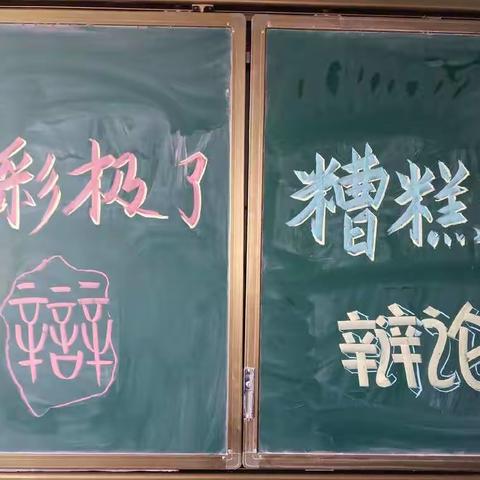 彩极了
辯
糟糕
辩论